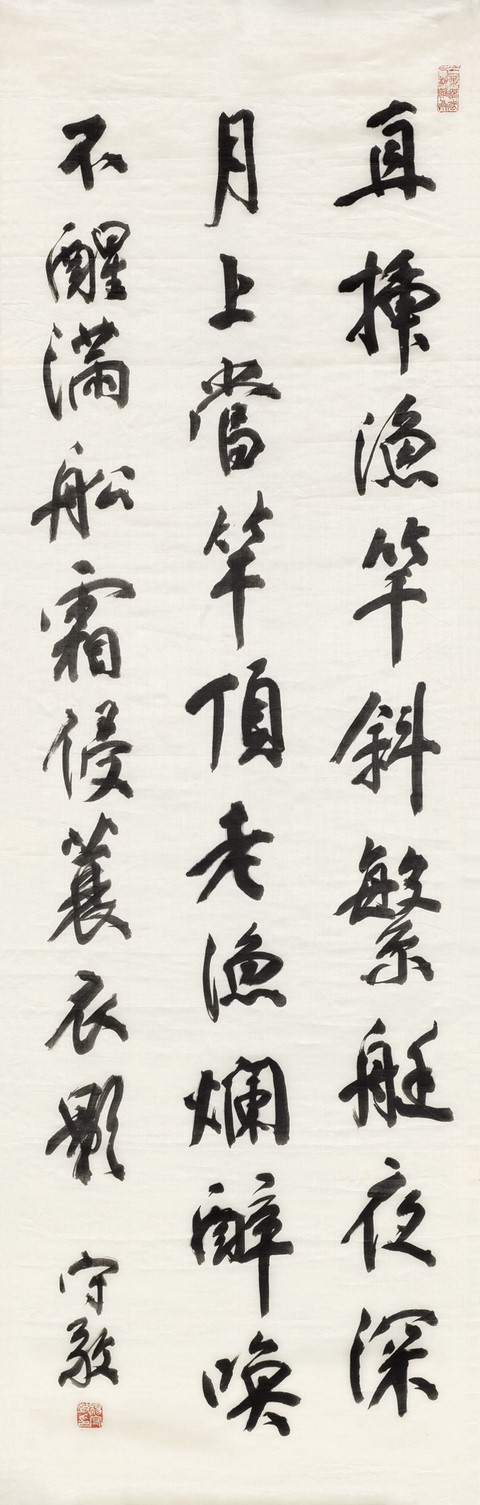 直插漁竿斜繁艇夜深
月上當竿頂老漁爛醉喚
不醒滿船霜侵蓑衣影
守敬